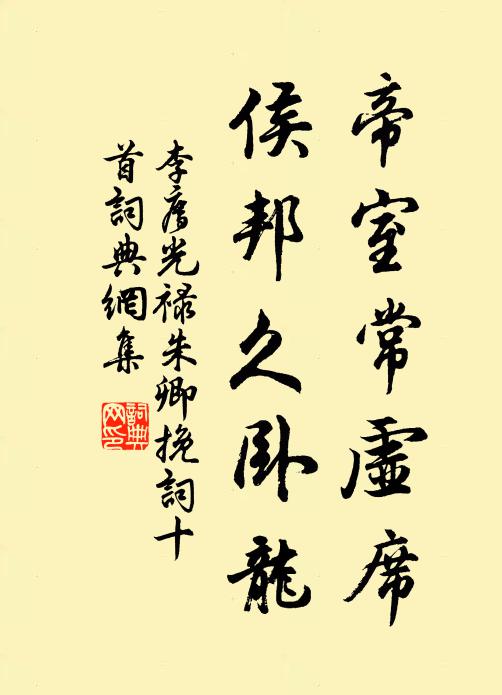 帝室常虛席
侯邦久臥龍
李廌光祿朱卿挽詞十
首詞典網集
詞典
网印